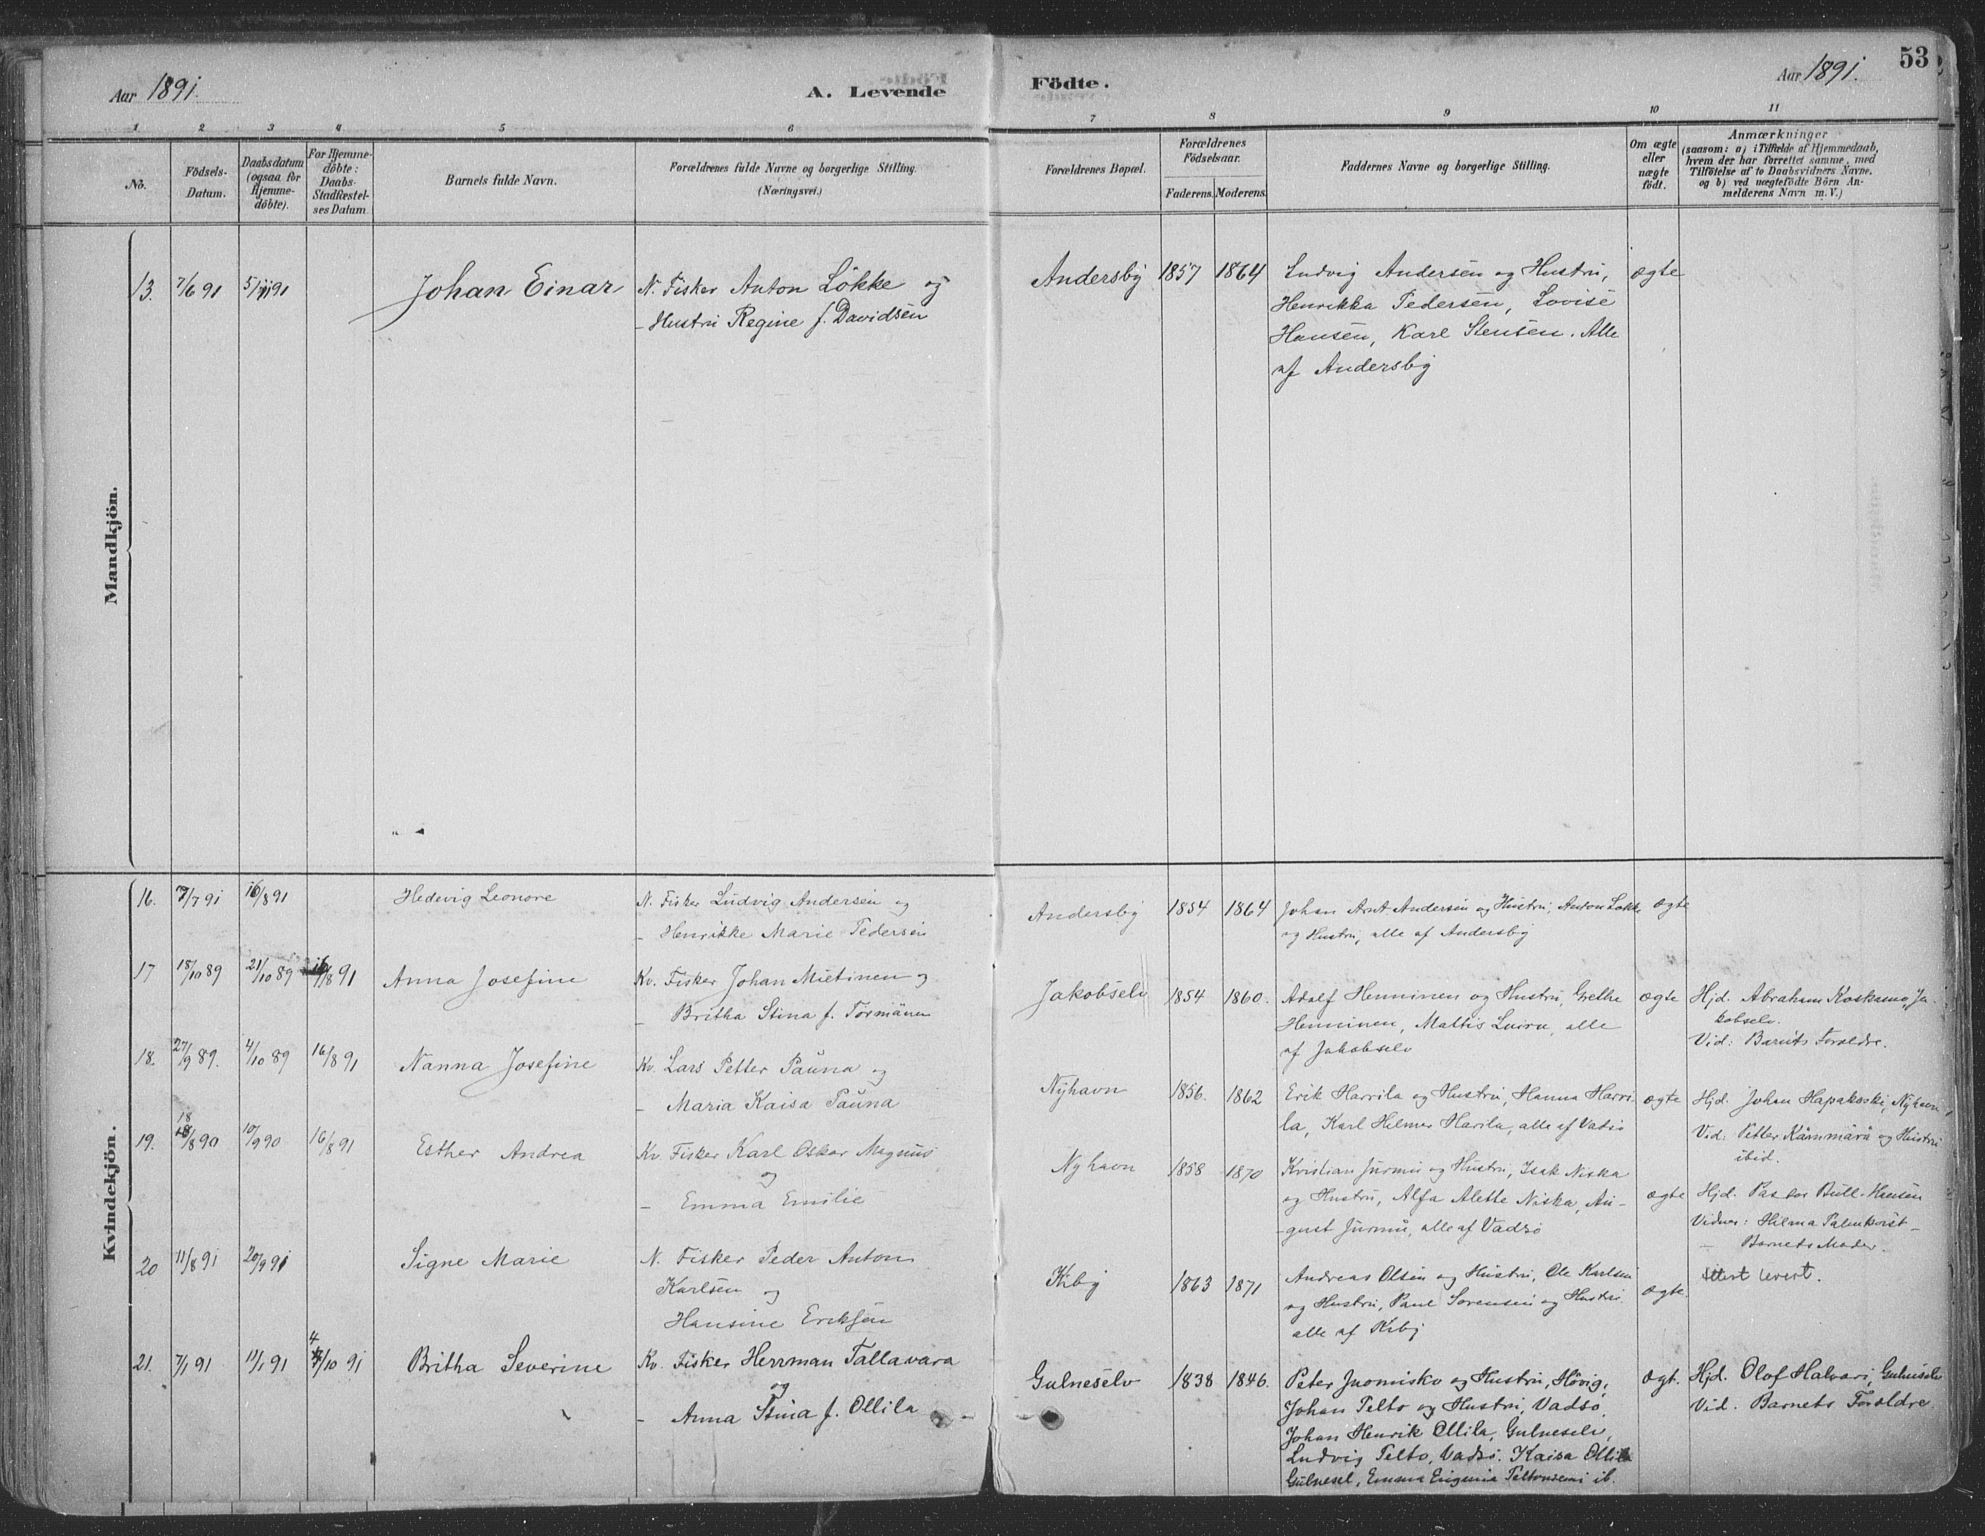 53
Aar 1891.
A. Levende
Födte.
Aar 1891.
1 2 3 4 5 6 7 8 9 10 11
No.
Födsels-
Datum.
Daabsdatum
(ogsaa for
Hjemme-
döbte).
For Hjemme-
döbte:
Daabs-
Stadfæstel-
ses Datum
Barnets fulde Navn.
Forældrenes fulde Navne og borgerlige Stilling.
(Næringsvei.)
Forældrenes Bopæl.
Forældrenes
Födselsaar.
Faderens. Moderens.
Faddernes Navne og borgerlige Stilling.
Om ægte
eller
uægte
födt.
Anmærkninger
(saasom: a) i Tilfælde af Hjemmedaab,
hvem der har forrettet samme, med
Tilföielse af to Daabsvidners Navne.
og b) ved uægtefödte Börn An-
melderens Navn m. V.)
Mandkjön.
13. 7/6 91 5/11 91 Johan Einar
N. Fisker Anton Lökke og
– Hustru Regine f. Davidsen
Andersby 1857 1864
Ludvig Andersen og Hustru,
Henrikka Pedersen, Lovise
Hansen, Karl Stensen. Alle
af Andersby
ægte
Kvindekjön.
16. 7/7 91 16/8 91 Hedevig Leonore
N. Fisker Ludvig Andersen og
– Henrikke Marie Pedersen
Andersby 1854 1864
Johan Arnt Andersen og Hustru, Anton Lökke
og Hustru, alle af Andersby
ægte
17 18/10 89 21/10 89 16/8 91 Anna Josefine
Kv. Fisker Johan Mietinen og
– Britha Stina f. Tormänen
Jakobselv 1854 1860.
Adolf Henninen og Hustru, Grethe
Henninen, Mattis Luiru, alle
af Jakobselv
ægte
Hjd. Abraham Koskamo, Ja-
kobselv.
Vid: Barnets Forældre.
18. 27/9 89. 4/10 89 16/8 91 Nanna Josefine
Kv. Lars Petter Pauna og
– Maria Kaisa Pauna
Nyhavn 1856. 1862
Erik Harrila og Hustru, Hanna Harri-
la, Karl Hilmer Harila, alle af Vadsö
ægte
Hjd. Johan Hapakoski, Nyhavn,
Vid: Petter Kämmärä og Hustru
ibid.
19. 18/8 90 10/9 90 16/8 91 Esther Andrea
Kv. Fisker Karl Oskar Magnus
og
– Emma Emilie
Nyhavn 1858 1870
Kristian Jurmu og Hustru, Isak Niska
og Hustru, Alfa Alette Niska, Au-
gust Jurmu, alle af Vadsö
ægte
Hjd. Pastor Bull-Hansen
Vidner: Hilma Palmkvist –
– Barnets Moder.
20 11/8 91 20/9 91 Signe Marie
N. Fisker Peder Anton
Karlsen og
Hansine Eriksen
Kiby 1863 1871
Andreas Olsen og Hustru, Ole Karlsen
og Hustru, Paul Sorensen og Hustru
alle af Kiby
ægte.
levert.
21. 7/1 91 11/1 91 4/10 91 Britha Severine
Kv. Fisker Herrman Tallavara
og
– Anna Stina f. Ollila
Gulneselv 1838 1846.
Peter Juomisko og Hustru, Hövig,
Johan Pelto og Hustru, Vadsö,
Johan Henrik Ollila, Gulneselv,
Ludvig Pelto, Vadsö. Kaisa Ollila
Gulnesel, Emma Eugenia Peltoniemi ib.
ægt.
Hjd. Olof Halvari, Gulneselv
Vid. Barnets Forældre